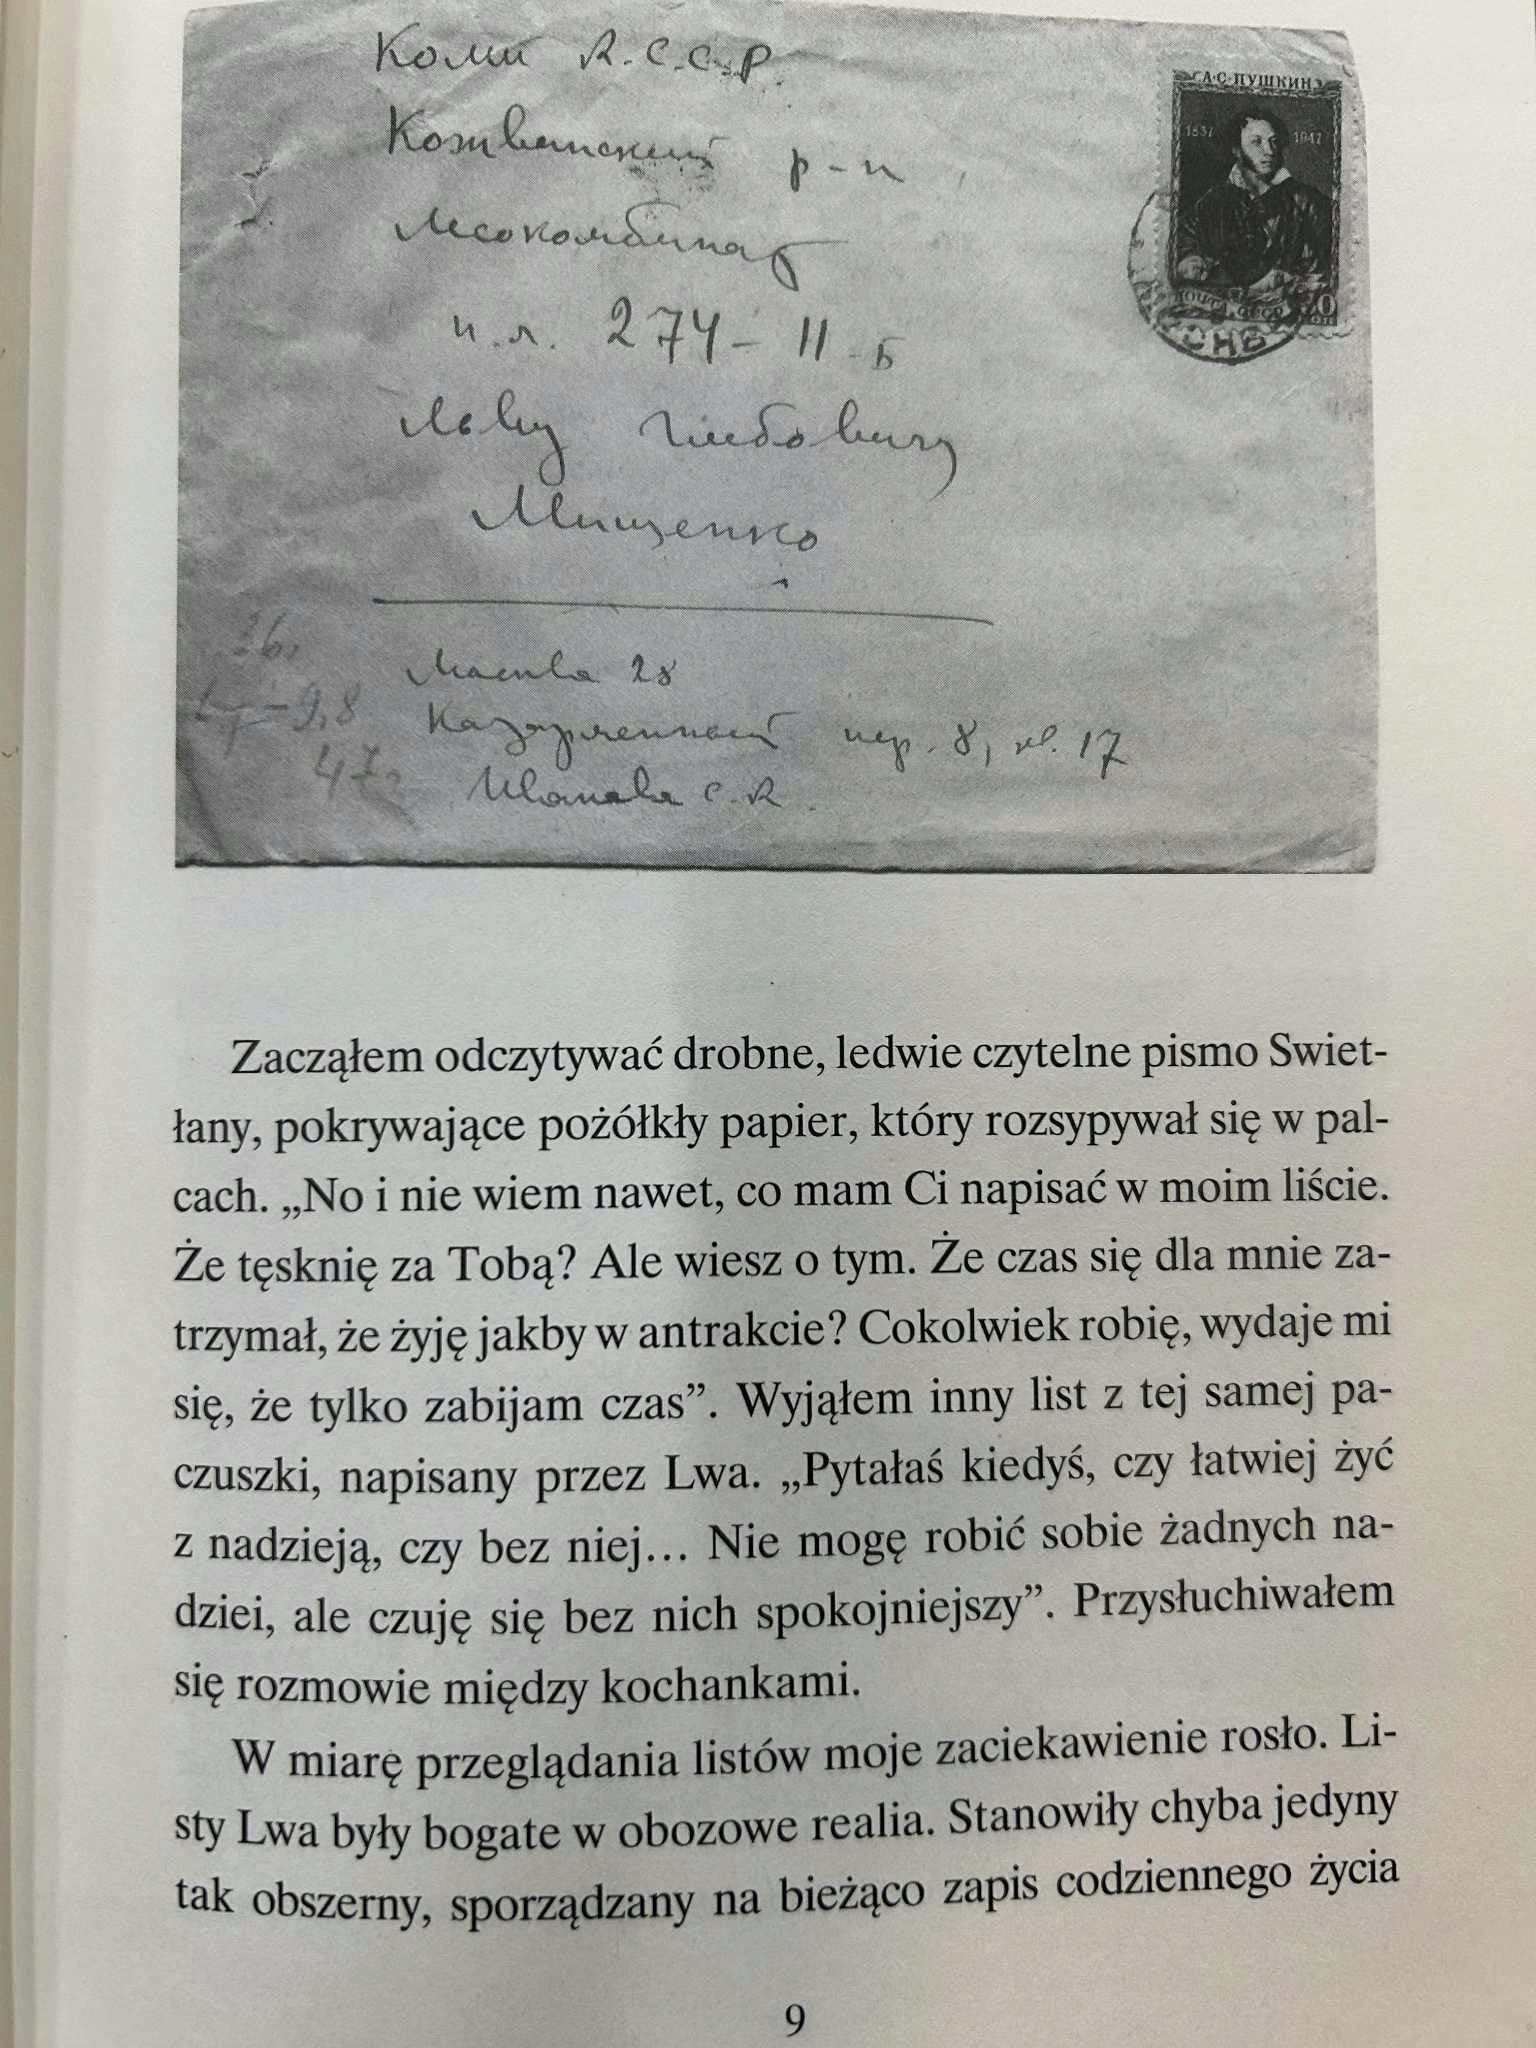 Коми А.С.С.Р.
Кожвинский р-н
Лесокомбинат
п.л. 274-11-Б
Льву Глебовичу
Мищенко
Москва 28
Казарменный пер. 8, кв. 17
Иванова С.А.
26.
-9,8
47г
А•С•ПУШКИН
1837 1947
ПОЧТА СССР
Zacząłem odczytywać drobne, ledwie czytelne pismo Swiet-
łany, pokrywające pożółkły papier, który rozsypywał się w pal-
cach. „No i nie wiem nawet, co mam Ci napisać w moim liście.
Że tęsknię za Tobą? Ale wiesz o tym. Że czas się dla mnie za-
trzymał, że żyję jakby w antrakcie? Cokolwiek robię, wydaje mi
się, że tylko zabijam czas”. Wyjąłem inny list z tej samej pa-
czuszki, napisany przez Lwa. „Pytałaś kiedyś, czy łatwiej żyć
z nadzieją, czy bez niej… Nie mogę robić sobie żadnych na-
dziei, ale czuję się bez nich spokojniejszy”. Przysłuchiwałem
się rozmowie między kochankami.
W miarę przeglądania listów moje zaciekawienie rosło. Li-
sty Lwa były bogate w obozowe realia. Stanowiły chyba jedyny
tak obszerny, sporządzany na bieżąco zapis codziennego życia
9